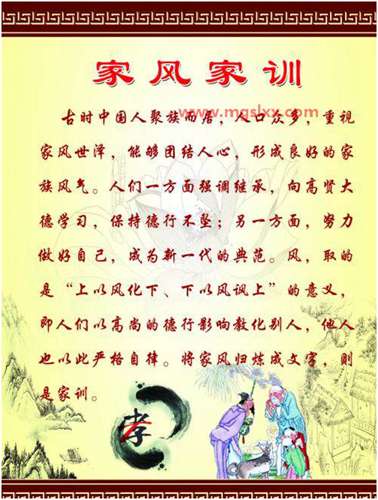 家风家训
www.mgslxx.com
古时中国人聚族而居，人口众多，重视
家风世泽，能够团结人心，形成良好的家
族风气。人们一方面强调继承，向高贤大
德学习，保持德行不坠；另一方面，努力
做好自己，成为新一代的典范。风，取的
是“上以风化下、下以风讽上”的意义，
即人们以高尚的德行影响教化别人，他人
也以此严格自律。将家风归炼成文字，则
是家训。
孝